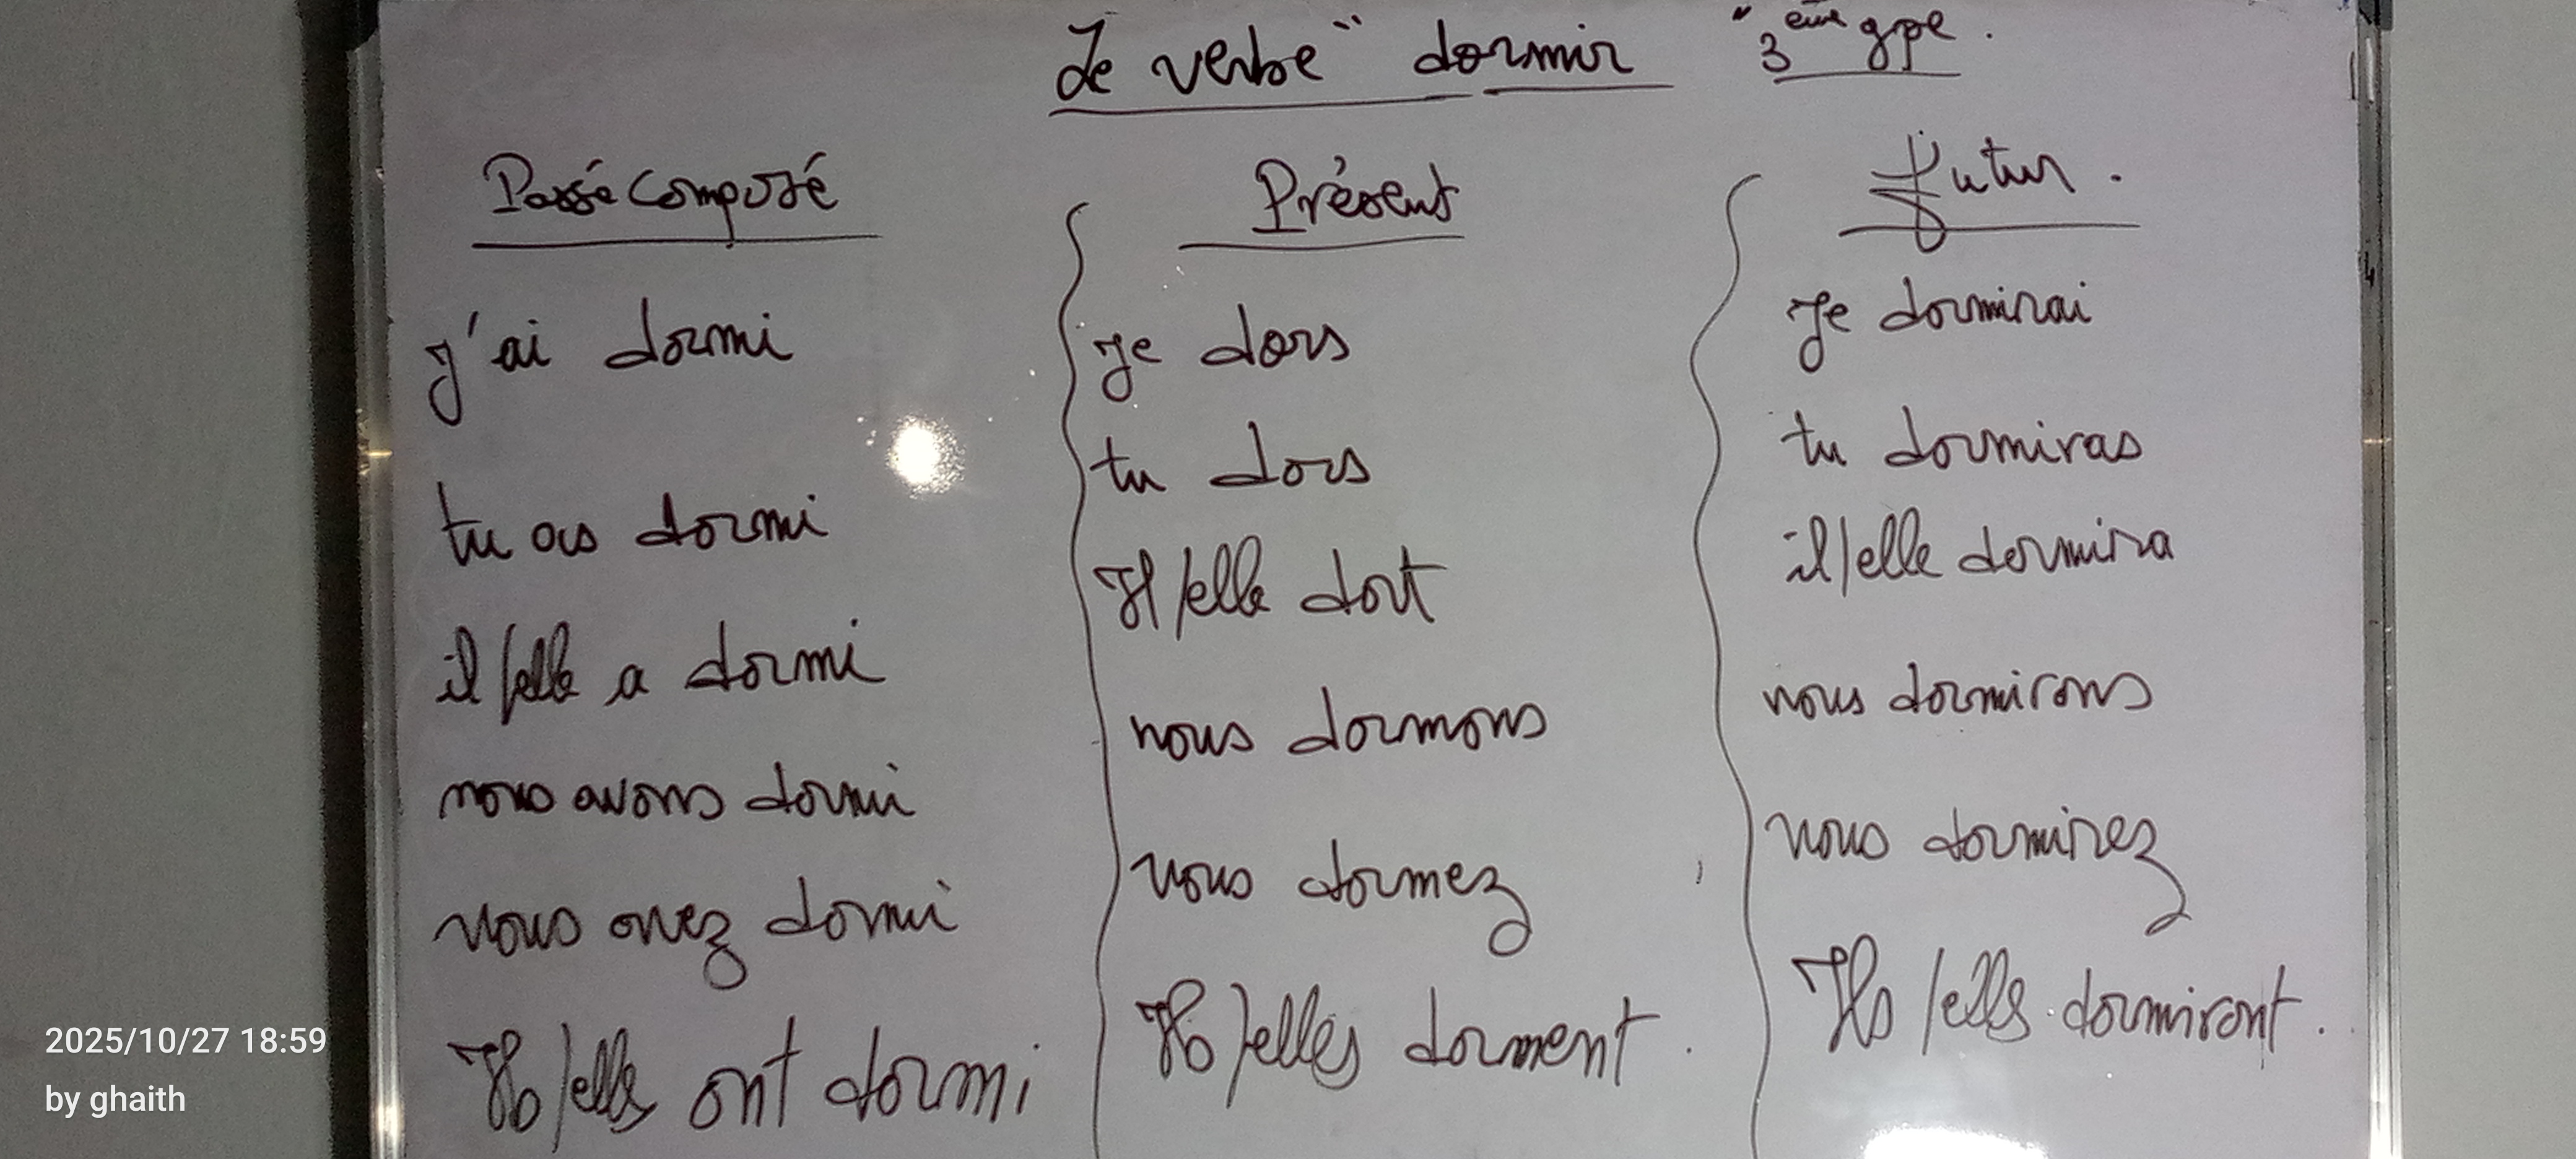 Le verbe " dormir " 3ème gpe.
Passé composé
j'ai dormi
tu as dormi
il/elle a dormi
nous avons dormi
vous avez dormi
Ils/elles ont dormi
Présent
je dors
tu dors
Il/elle dort
nous dormons
vous dormez
Ils/elles dorment.
futur.
Je dormirai
tu dormiras
il/elle dormira
nous dormirons
vous dormirez
Ils/elles dormiront.
2025/10/27 18:59
by ghaith